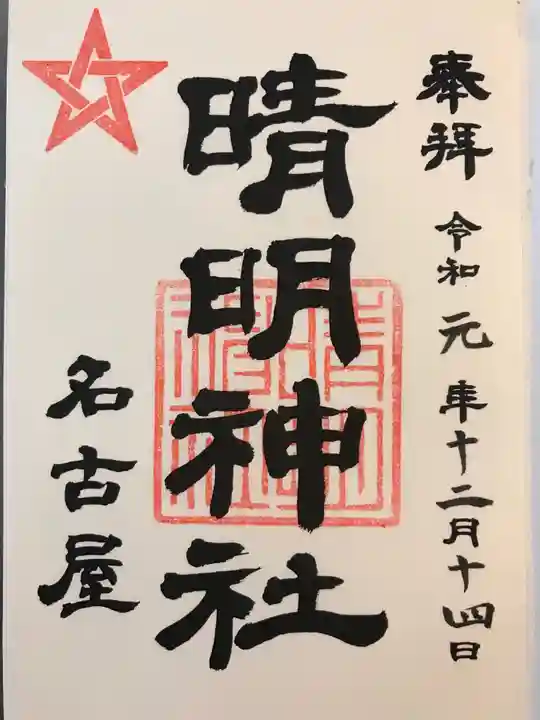 奉拝 令和元年十二月十四日
晴明神社
名古屋